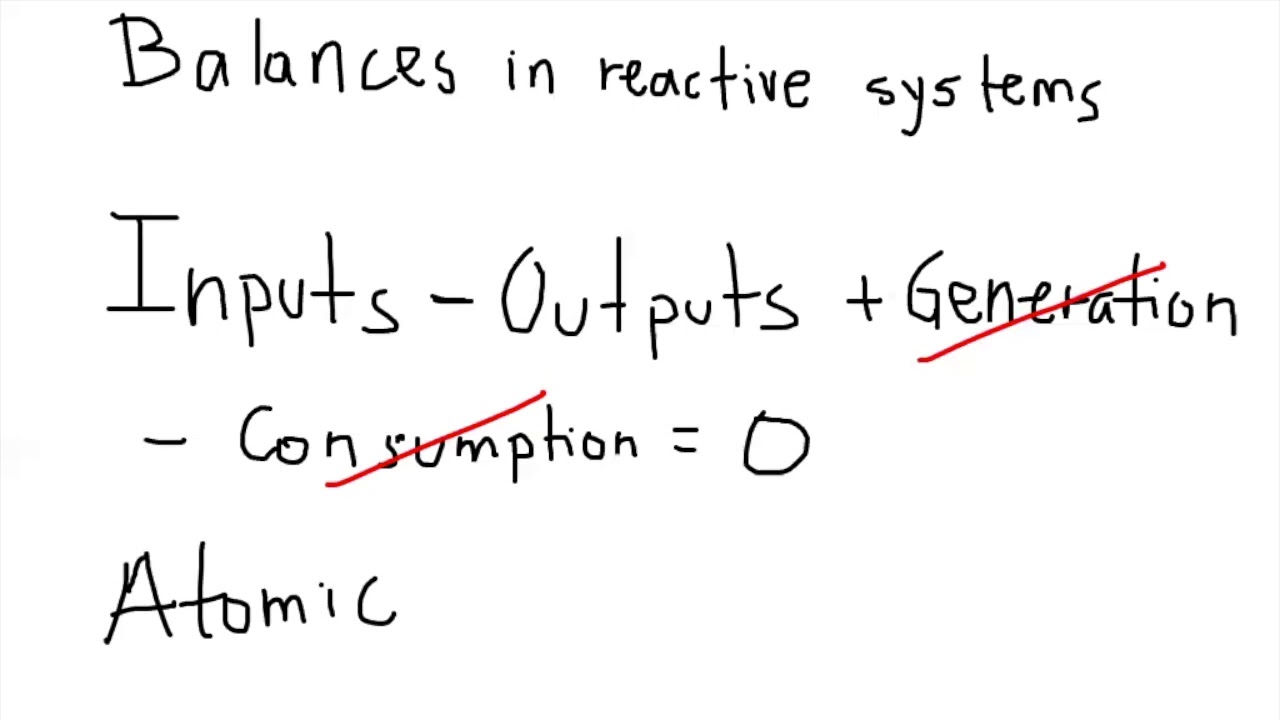 Balances in reactive systems
Inputs - Outputs + Generation
- Consumption = 0
Atomic